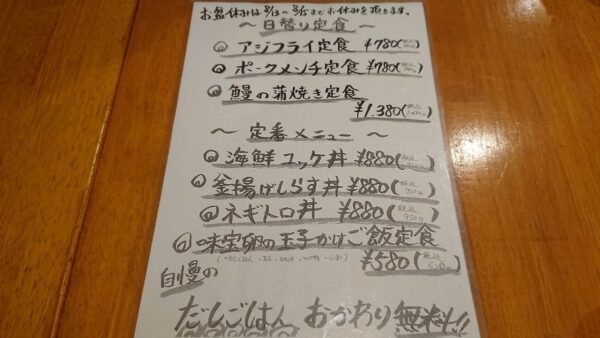 お盆休みは8/13〜8/15までお休みを頂きます。
〜日替り定食〜
アジフライ定食 ¥780(税込
ポークメンチ定食 ¥780(税込
鰻の蒲焼き定食
¥1.380(税込
〜 定番メニュー 〜
海鮮ユッケ丼 ¥880(税込950円
釜揚げしらす丼 ¥880(税込950円
ネギトロ丼 ¥880(税込950円
味宝卵の玉子かけご飯定食
¥580(税込
自慢の
だしごはん おかわり無料!!